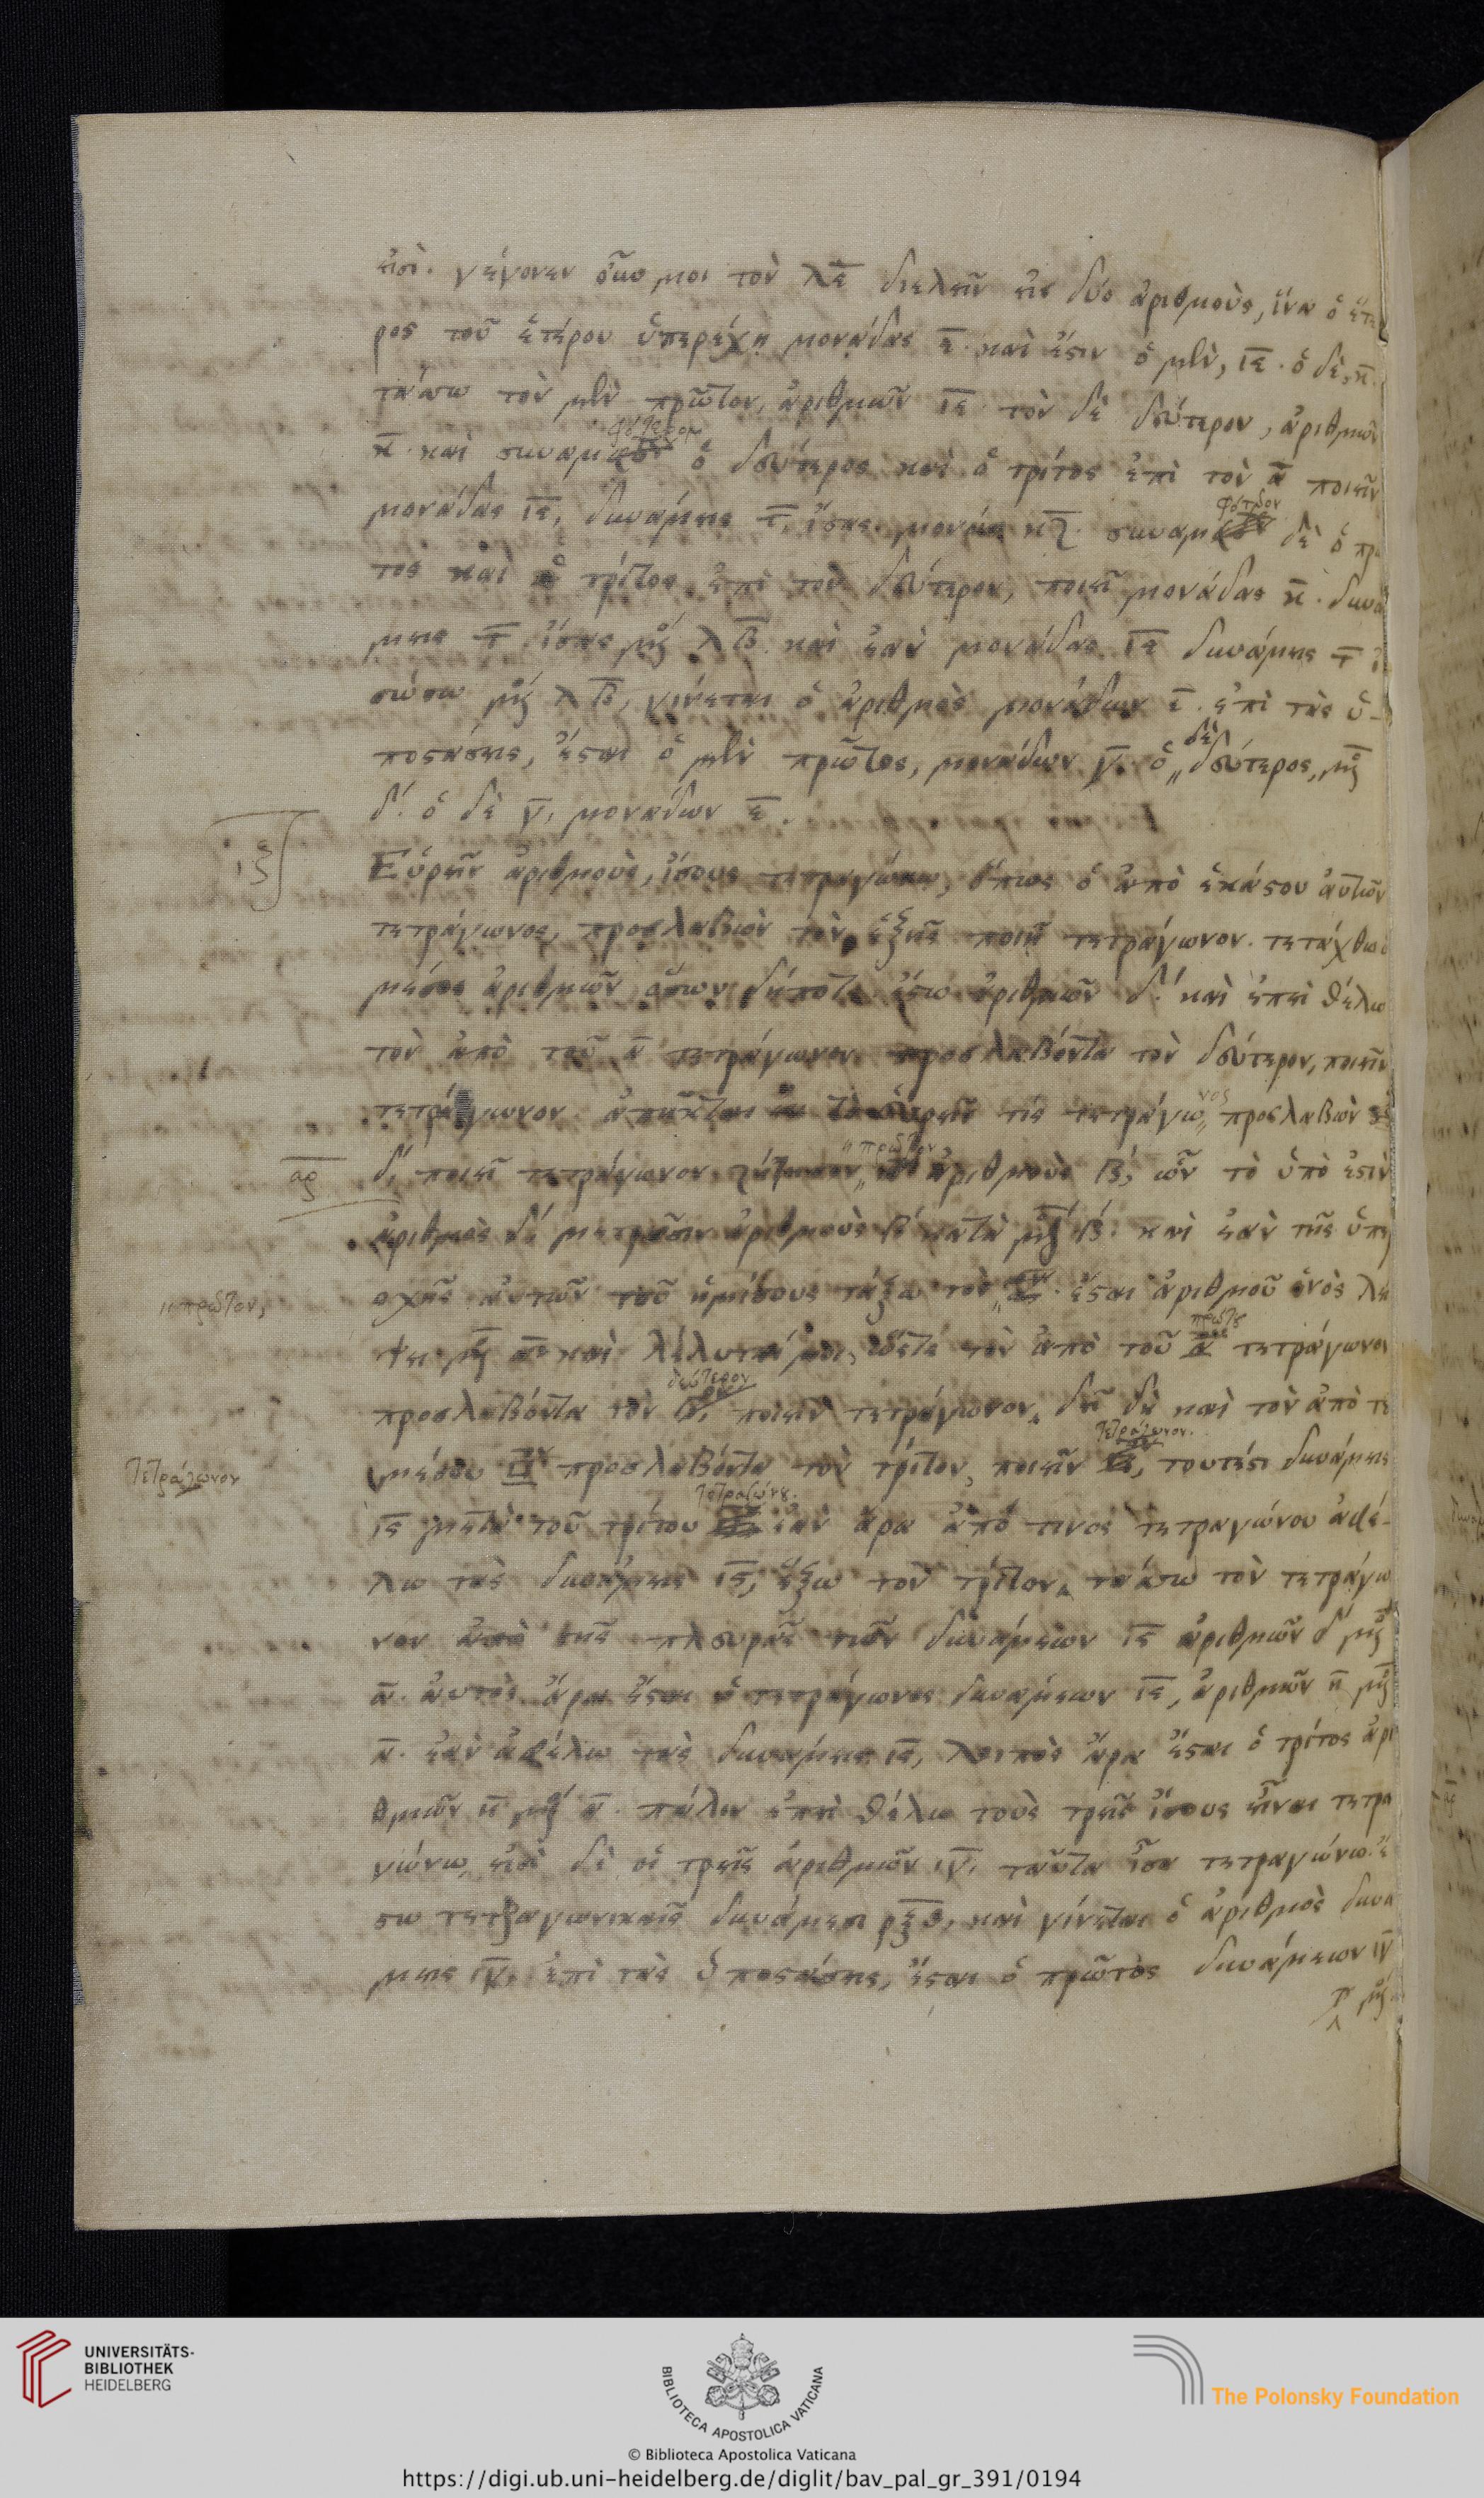 εἰσὶ. γέγονεν οὖν μοι τὸν λε διελεῖν εἰς δύο ἀριθμοὺς, ἵνα ὁ ἕτε
ρος τοῦ ἑτέρου ὑπερέχῃ μονάδας ε. καὶ ἔστιν ὁ μὲν, ιε. ὁ δὲ, κ.
τάσσω τὸν μὲν πρῶτον, ἀριθμῶν ιε τὸν δὲ δεύτερον, ἀριθμῶν
κ. καὶ ὁ δεύτερος καὶ ὁ τρίτος ἐπὶ τὸν α ποιεῖν
μονάδας ιε, δυνάμεις τ, ἴσας δὲ ὁ πρῶ
τος καὶ ὁ τρίτος ἐπὶ τὸν δεύτερον, ποιεῖ μονάδας κ. δυνά
μεις τ, ἴσας μο λβ. καὶ ἐὰν μονάδας ιε δυνάμεις τ ἰ
σώσω μο λβ, γίνεται ὁ ἀριθμὸς μονάδων ἐπὶ τὰς ὑ-
ποστάσεις, ἔσται ὁ μὲν πρῶτος, μονάδων γ. ὁ δὲ δεύτερος, μο
δ. ὁ δὲ γ, μονάδων ε.
ιξ
Εὑρεῖν ἀριθμοὺς, ἴσους τετραγώνῳ, ὅπως ὁ ἀπὸ ἑκάστου αὐτῶν
τετράγωνος, προσλαβὼν τὸν ἑξῆς ποιῇ τετράγωνον. τετάχθω ὁ
μέσος ἀριθμῶν ὅσων δήποτε ἔστω ἀριθμῶν δ. καὶ ἐπεὶ θέλω
τὸν ἀπὸ τοῦ α τετράγωνον προσλαβόντα τὸν δεύτερον, ποιεῖν
τετράγωνον ἀπῆκται εἰς τὸ εὑρεῖν τίς τετράγωνος προσλαβὼν
αρ
δ, ποιεῖ τετράγωνον ἀριθμοὺς β, ὧν τὸ ὑπὸ ἐστὶν
ἀριθμὸς δ μετροῦσιν ἀριθμοὺς β κατὰ μο β. καὶ ἐὰν τῆς ὑπερ
η πρῶτον,
οχῆς αὐτῶν τοῦ ἡμίσους τάξω τὸν ἔσται ἀριθμοῦ ἑνὸς λεί
ψει μο α καὶ λέλυταί μοι, τὸν ἀπὸ τοῦ πρώτου τετράγωνον
προσλαβόντα τὸν δεύτερον ποιεῖν τετράγωνον, δεῖ δὴ καὶ τὸν ἀπὸ το
τετράγωνον
μέσου προσλαβόντα τὸν τρίτον, ποιεῖν τετράγωνον, τουτέστι δυνάμεις
ις μετὰ τοῦ τρίτου ἐὰν ἄρα ἀπό τινος τετραγώνου ἀφέ-
λω τὰς δυνάμεις ις, ἕξω τὸν τρίτον, τάσσω τὸν τετράγω
νον ἀπὸ τῆς πλευρᾶς τῶν δυνάμεων ις ἀριθμῶν δ μο
α. αὐτὸς ἄρα ἔσται ὁ τετράγωνος δυνάμεων ις, ἀριθμῶν η μο
α. ἐὰν ἀφέλω τὰς δυνάμεις ις, λοιπὸς ἄρα ἔσται ὁ τρίτος ἀρι
θμῶν η μο α. πάλιν ἐπεὶ θέλω τοὺς τρεῖς ἴσους εἶναι τετρα
γώνῳ, εἰσὶ δὲ οἱ τρεῖς ἀριθμῶν ιγ, ταῦτα ἴσα τετραγώνῳ. ἔ
στω τετραγωνικαῖς δυνάμεσι ρξθ, καὶ γίνεται ὁ ἀριθμὸς δυνά
μεις ιγ, ἐπὶ τὰς ὑποστάσεις, ἔσται ὁ πρῶτος δυνάμεων ιγ
UNIVERSITÄTS-
BIBLIOTHEK
HEIDELBERG
BIBLIOTECA APOSTOLICA VATICANA
The Polonsky Foundation
© Biblioteca Apostolica Vaticana
https://digi.ub.uni-heidelberg.de/diglit/bav_pal_gr_391/0194